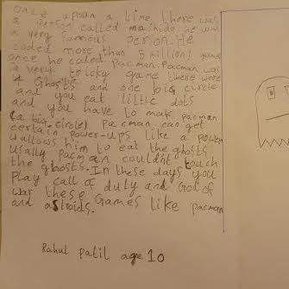 Once upon a time, there was
a person called masahide he was
a very famous person. He
coded more than 5 million games
once he coded pacman. Pacman was
a very tricky game there were
4 Ghosts and one big circle
and you eat little dots
and you have to make pacman
(a big circle) pacman can get
certain power-ups like a power
allows him to eat the ghosts
usally pacman couldnt touch
the ghosts. In these days you
Play call of duty and God of
war these Games like pacman
and astroids.
Rahul patil age 10